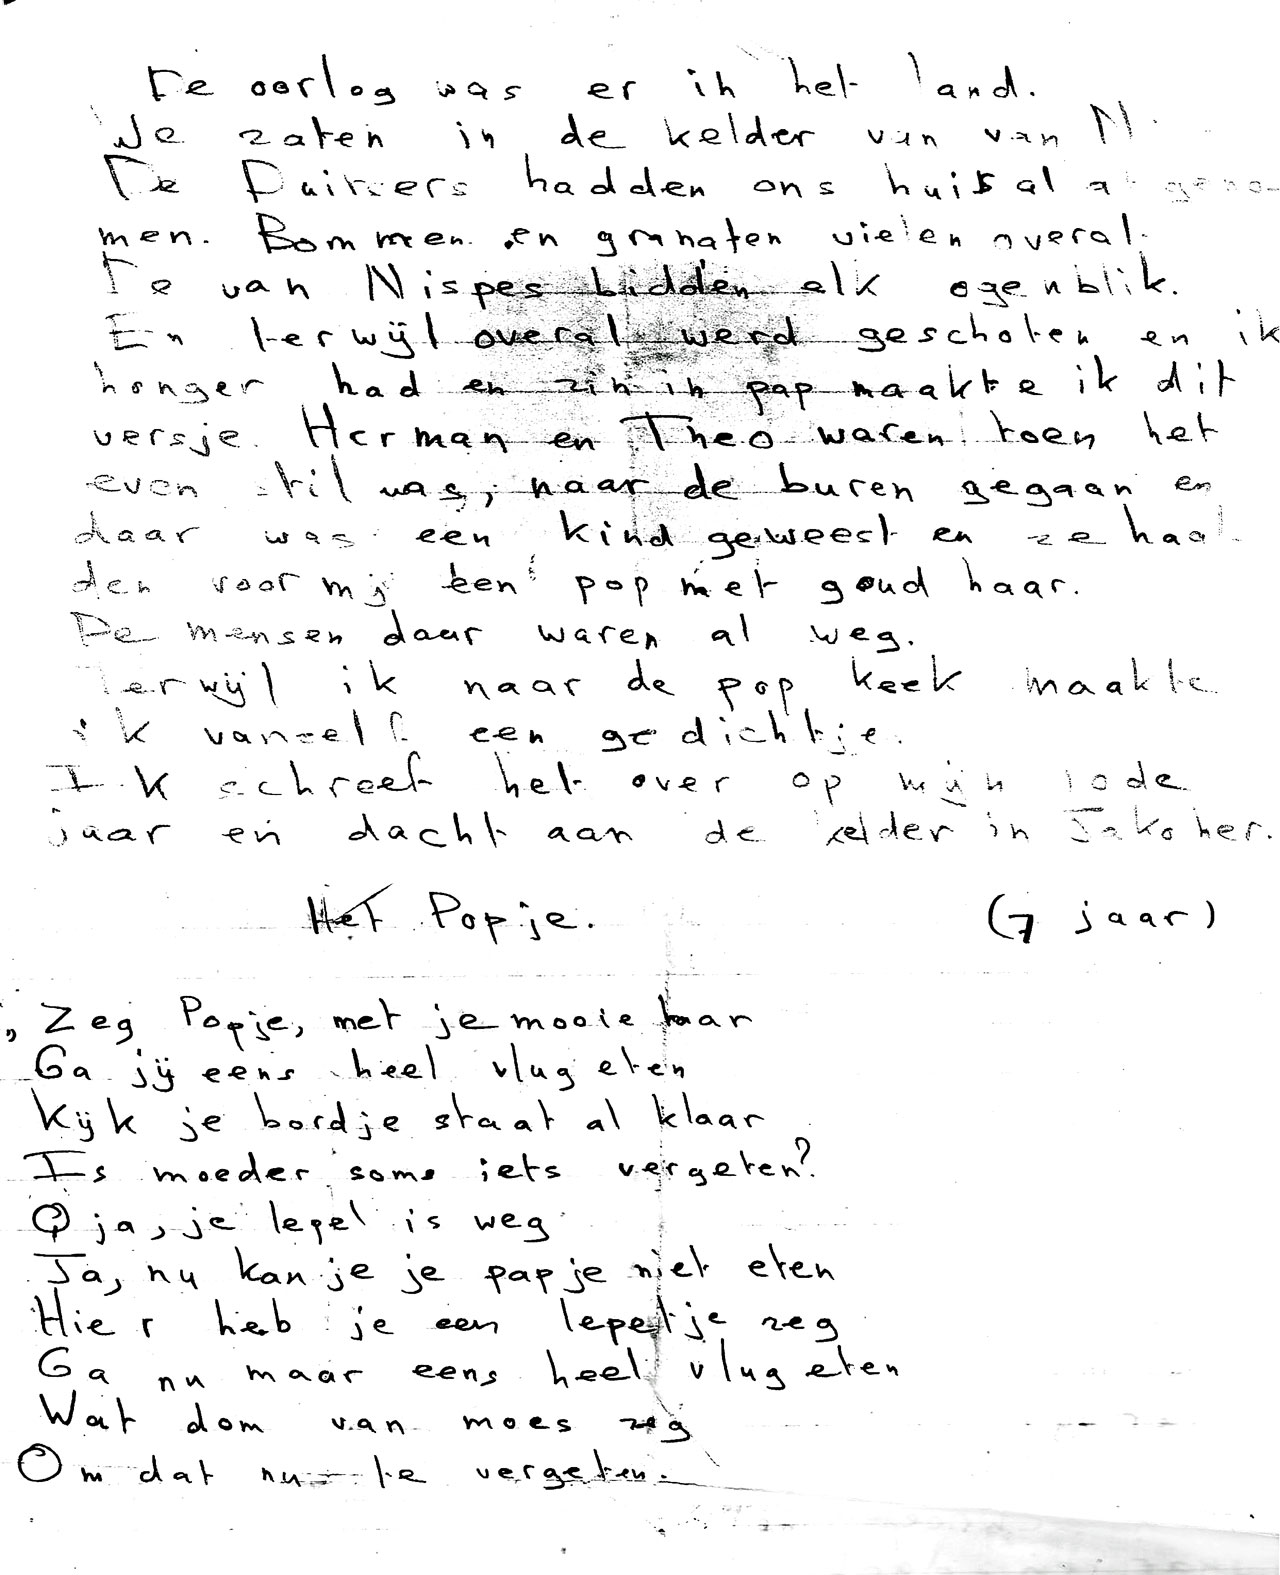 De oorlog was er in het land.
We zaten in de kelder van van N.
De Duitsers hadden ons huis al afgeno-
men. Bommen en granaten vielen overal.
De van Nispes bidden elk ogenblik.
En terwijl overal werd geschoten en ik
honger had en zin in pap maakte ik dit
versje. Herman en Theo waren toen het
even stil was, naar de buren gegaan en
daar was een kind geweest en ze haal-
den voor mij een pop met goud haar.
De mensen daar waren al weg.
Terwijl ik naar de pop keek maakte
ik vanzelf een gedichtje.
Ik schreef het over op mijn 10de
jaar en dacht aan de kelder in
Het Popje. (7 jaar)
„Zeg Popje, met je mooie haar
Ga jij eens heel vlug eten
Kijk je bordje staat al klaar
Is moeder soms iets vergeten?
O ja, je lepel is weg
Ja, nu kan je je papje niet eten
Hier heb je een lepeltje zeg
Ga nu maar eens heel vlug eten
Wat dom van moes zeg
Om dat nu te vergeten.